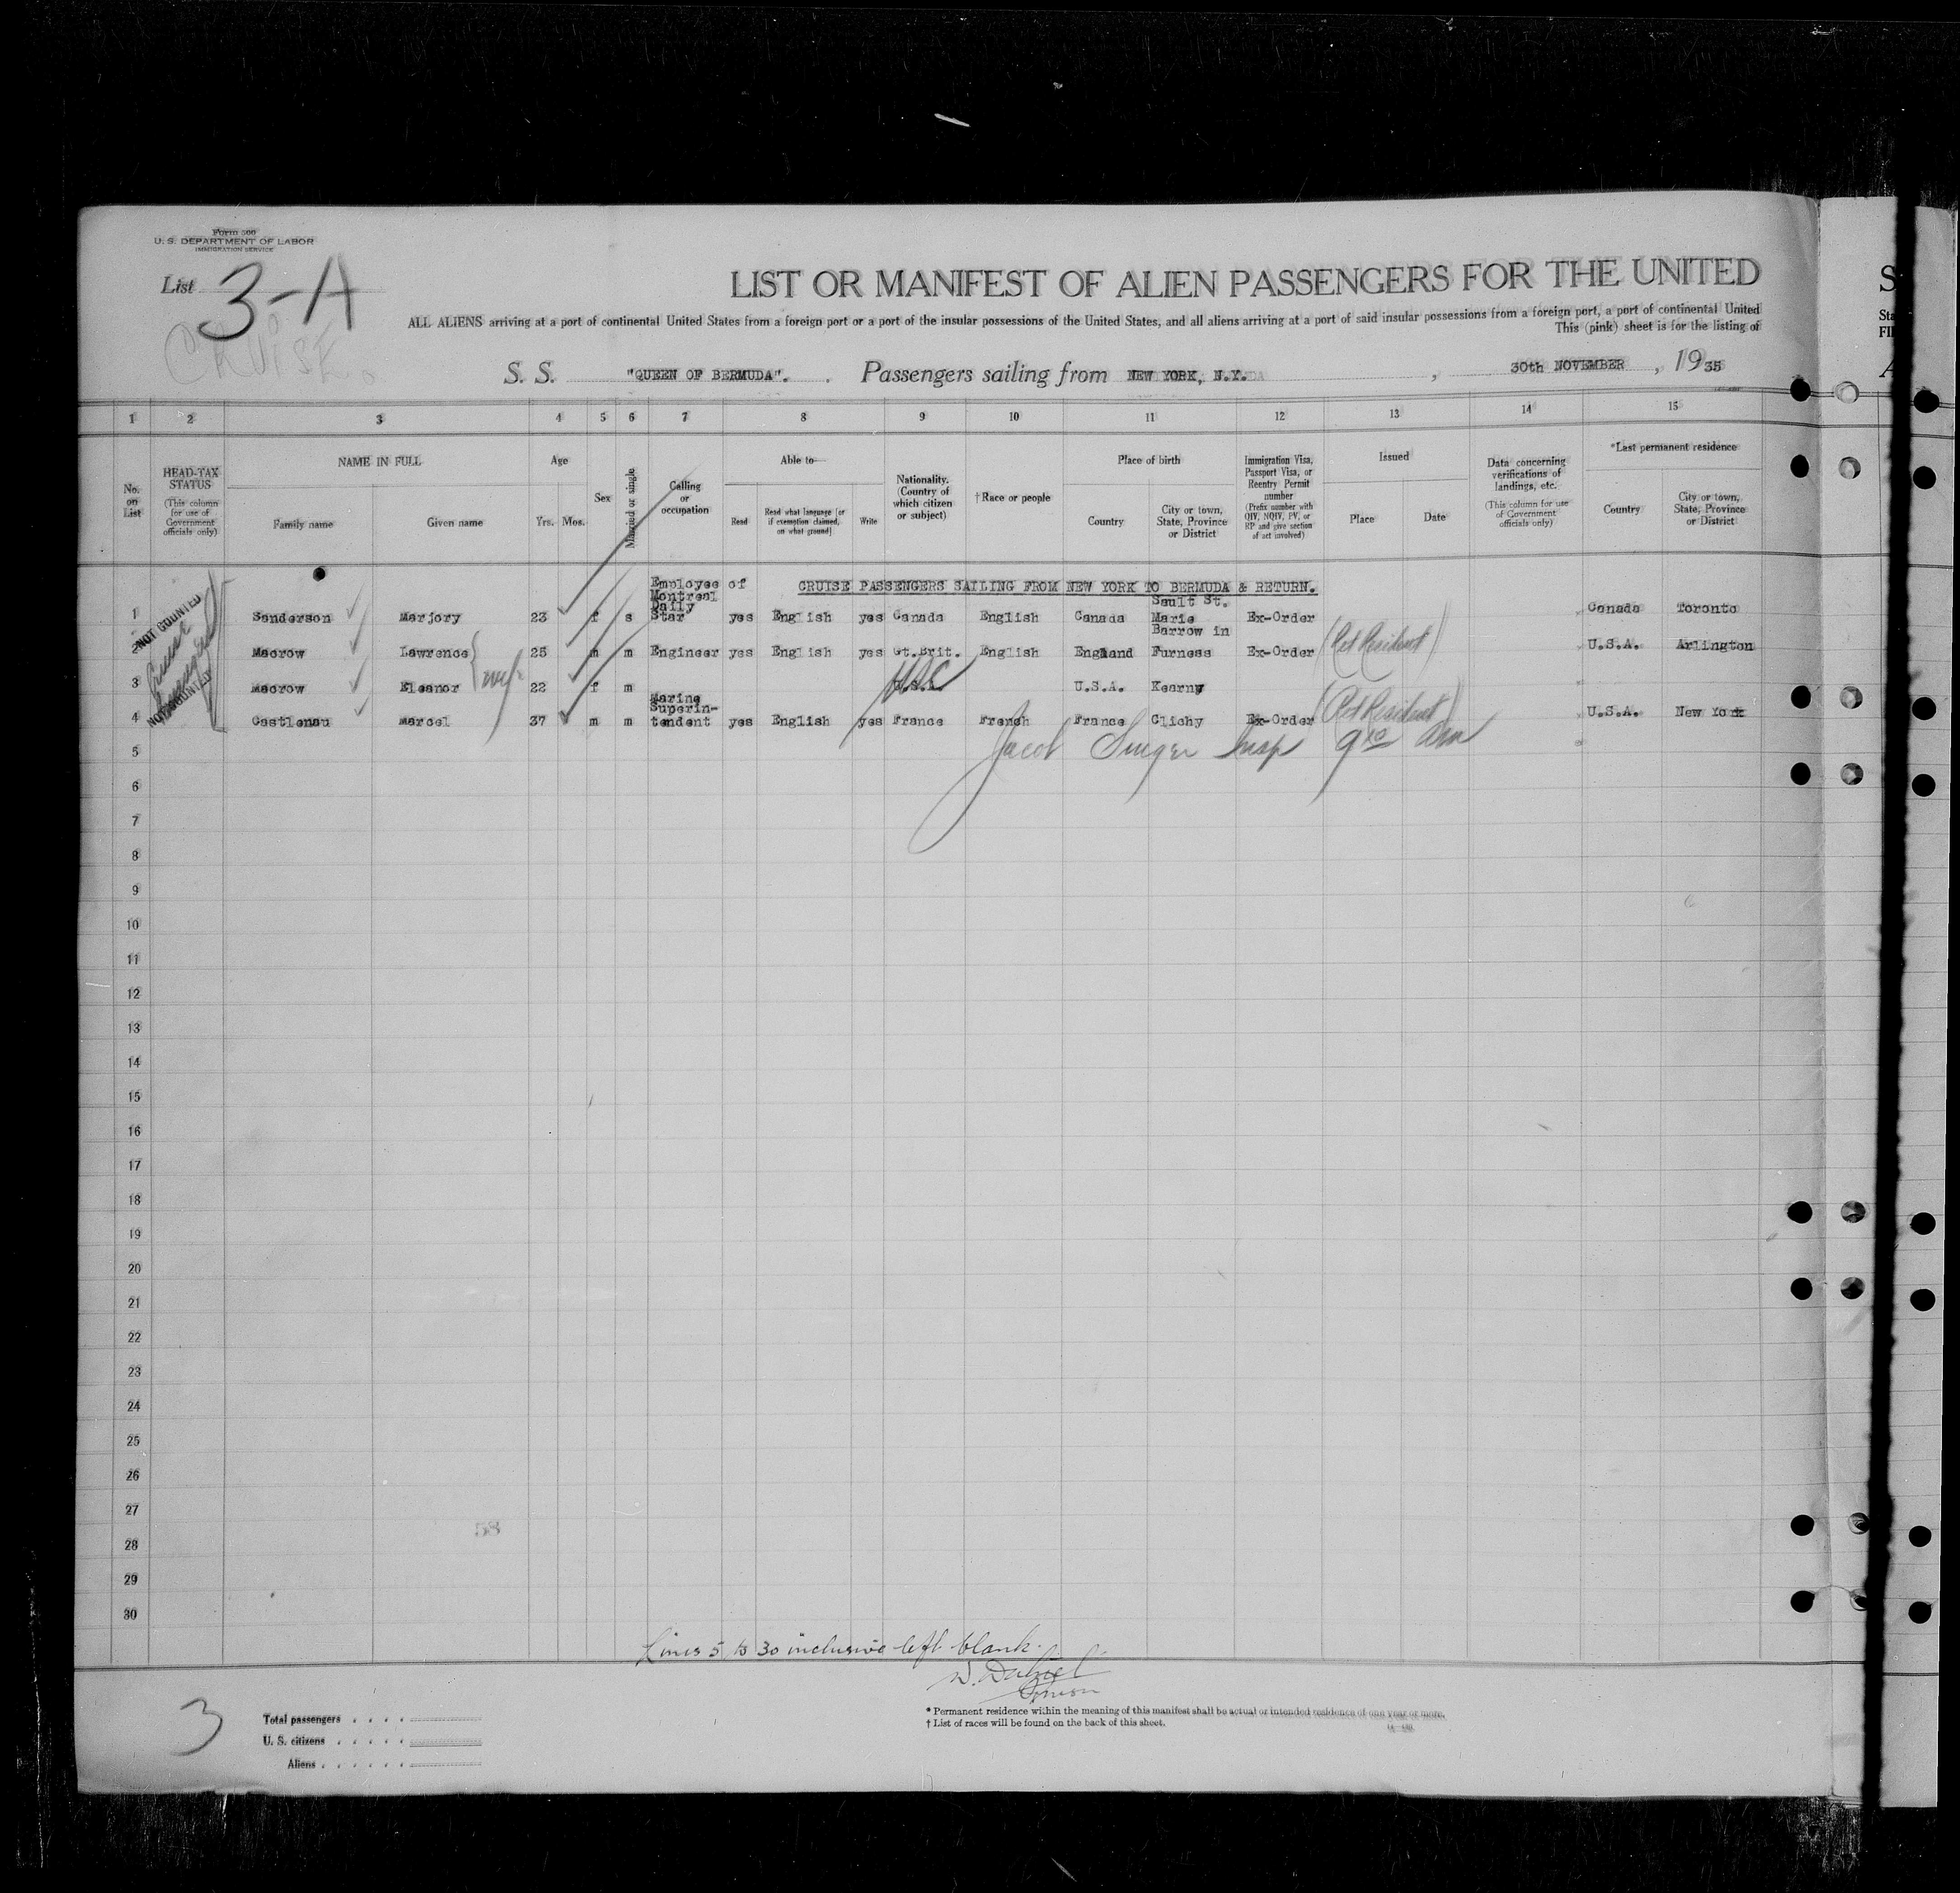 Form 500
U. S. DEPARTMENT OF LABOR
IMMIGRATION SERVICE
List 3-A
CRUISE.
LIST OR MANIFEST OF ALIEN PASSENGERS FOR THE UNITED
ALL ALIENS arriving at a port of continental United States from a foreign port or a port of the insular possessions of the United States, and all aliens arriving at a port of said insular possessions from a foreign port, a port of continental United
This (pink) sheet is for the listing of
S. S. "QUEEN OF BERMUDA". Passengers sailing from NEW YORK, N.Y. , 30th NOVEMBER , 1935
1 2 3 4 5 6 7 8 9 10 11 12 13 14 15
No. on List
HEAD-TAX STATUS (This column for use of Government officials only)
NAME IN FULL
Family name
Given name
Age
Yrs. Mos.
Sex
Married or single
Calling or occupation
Able to—
Read
Read what language [or if exemption claimed, on what ground]
Write
Nationality. (Country of which citizen or subject)
†Race or people
Place of birth
Country
City or town, State, Province or District
Immigration Visa, Passport Visa, or Reentry Permit number (Prefix number with QIV, NQIV, PV, or RP and give section of act involved)
Issued
Place
Date
Data concerning verifications of landings, etc. (This column for use of Government officials only)
*Last permanent residence
Country
City or town, State, Province or District
CRUISE PASSENGERS SAILING FROM NEW YORK TO BERMUDA & RETURN.
NOT COUNTED
Cruise Passengers
NOT COUNTED
1 Sanderson Marjory 23 f s Employee of Montreal Daily Star yes English yes Canada English Canada Sault St. Marie Ex-Order Canada Toronto
2 Macrow Lawrence 25 m m Engineer yes English yes Gt.Brit. English England Barrow in Furness Ex-Order (Ret Resident) U.S.A. Arlington
3 Macrow Eleanor wife 22 f m U.S.A. U.S.A. Kearny
4 Castlenau Marcel 37 m m Marine Superin-tendent yes English yes France French France Clichy Ex-Order (Ret Resident) U.S.A. New York
5 Jacob Singer Insp
6
7
8
9
10
11
12
13
14
15
16
17
18
19
20
21
22
23
24
25
26
27
58
28
29
30
Lines 5 to 30 inclusive left blank.
3
Total passengers
U. S. citizens
Aliens
* Permanent residence within the meaning of this manifest shall be actual or intended residence of one year or more.
† List of races will be found on the back of this sheet.